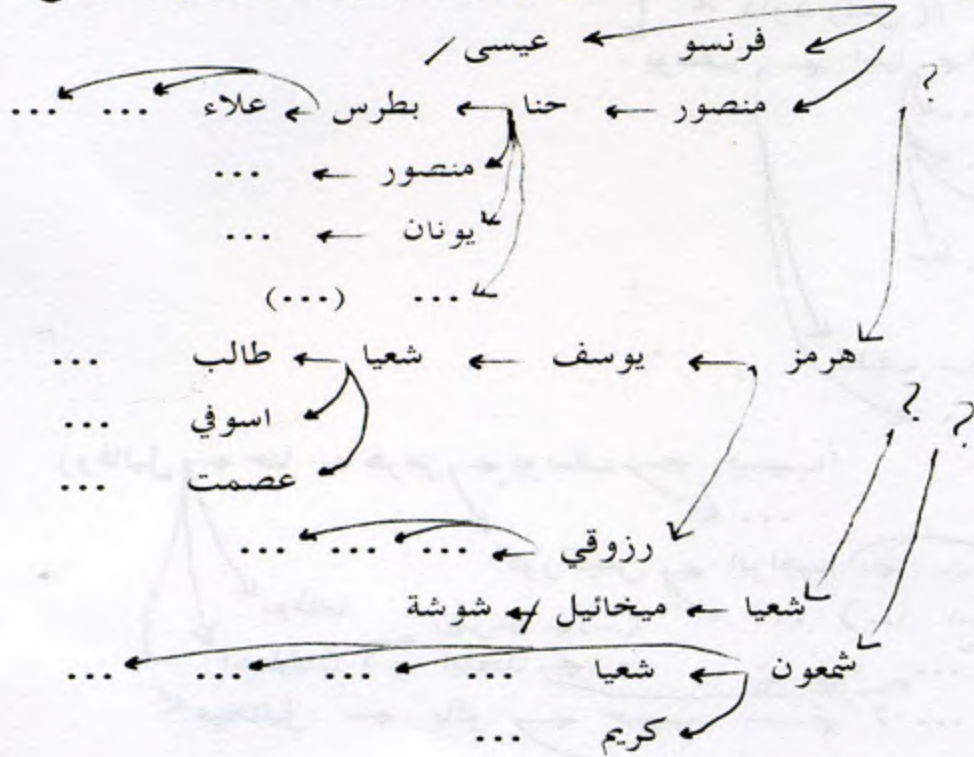 فرنسو عيسى
? منصور حنا بطرس علاء ... ...
منصور ...
يونان ...
... (...)
هرمز يوسف شعيا طالب ...
? ? اسوفي ...
عصمت ...
رزوقي ... ... ...
شعيا ميخائيل شوشة
شمعون شعيا ... ... ... ...
كريم ...